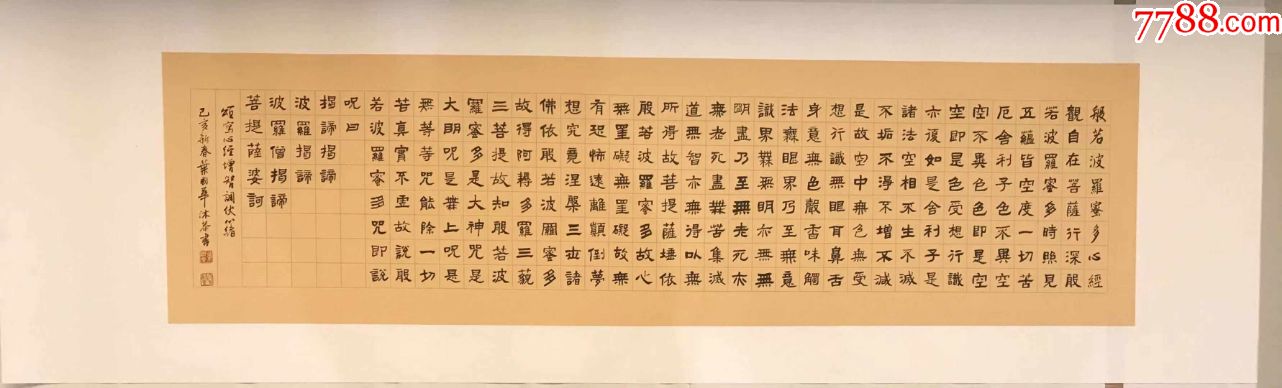 7788.com
般若波羅蜜多心經
觀自在菩薩行深般
若波羅蜜多時照見
五蘊皆空度一切苦
厄舍利子色不異空
空不異色色即是空
空即是色受想行識
亦復如是舍利子是
諸法空相不生不滅
不垢不淨不增不減
是故空中無色無受
想行識無眼耳鼻舌
身意無色聲香味觸
法無眼界乃至無意
識界無無明亦無無
明盡乃至無老死亦
無老死盡無苦集滅
道無智亦無得以無
所得故菩提薩埵依
般若波羅蜜多故心
無罣礙無罣礙故無
有恐怖遠離顛倒夢
想究竟涅槃三世諸
佛依般若波羅蜜多
故得阿耨多羅三藐
三菩提故知般若波
羅蜜多是大神咒是
大明呪是無上呪是
無等等咒能除一切
苦真實不虛故說般
若波羅蜜多咒即說
呪曰
揭諦揭諦
波羅揭諦
波羅僧揭諦
菩提薩婆訶
頌寫心經增智調伏
己亥新春葉沐書